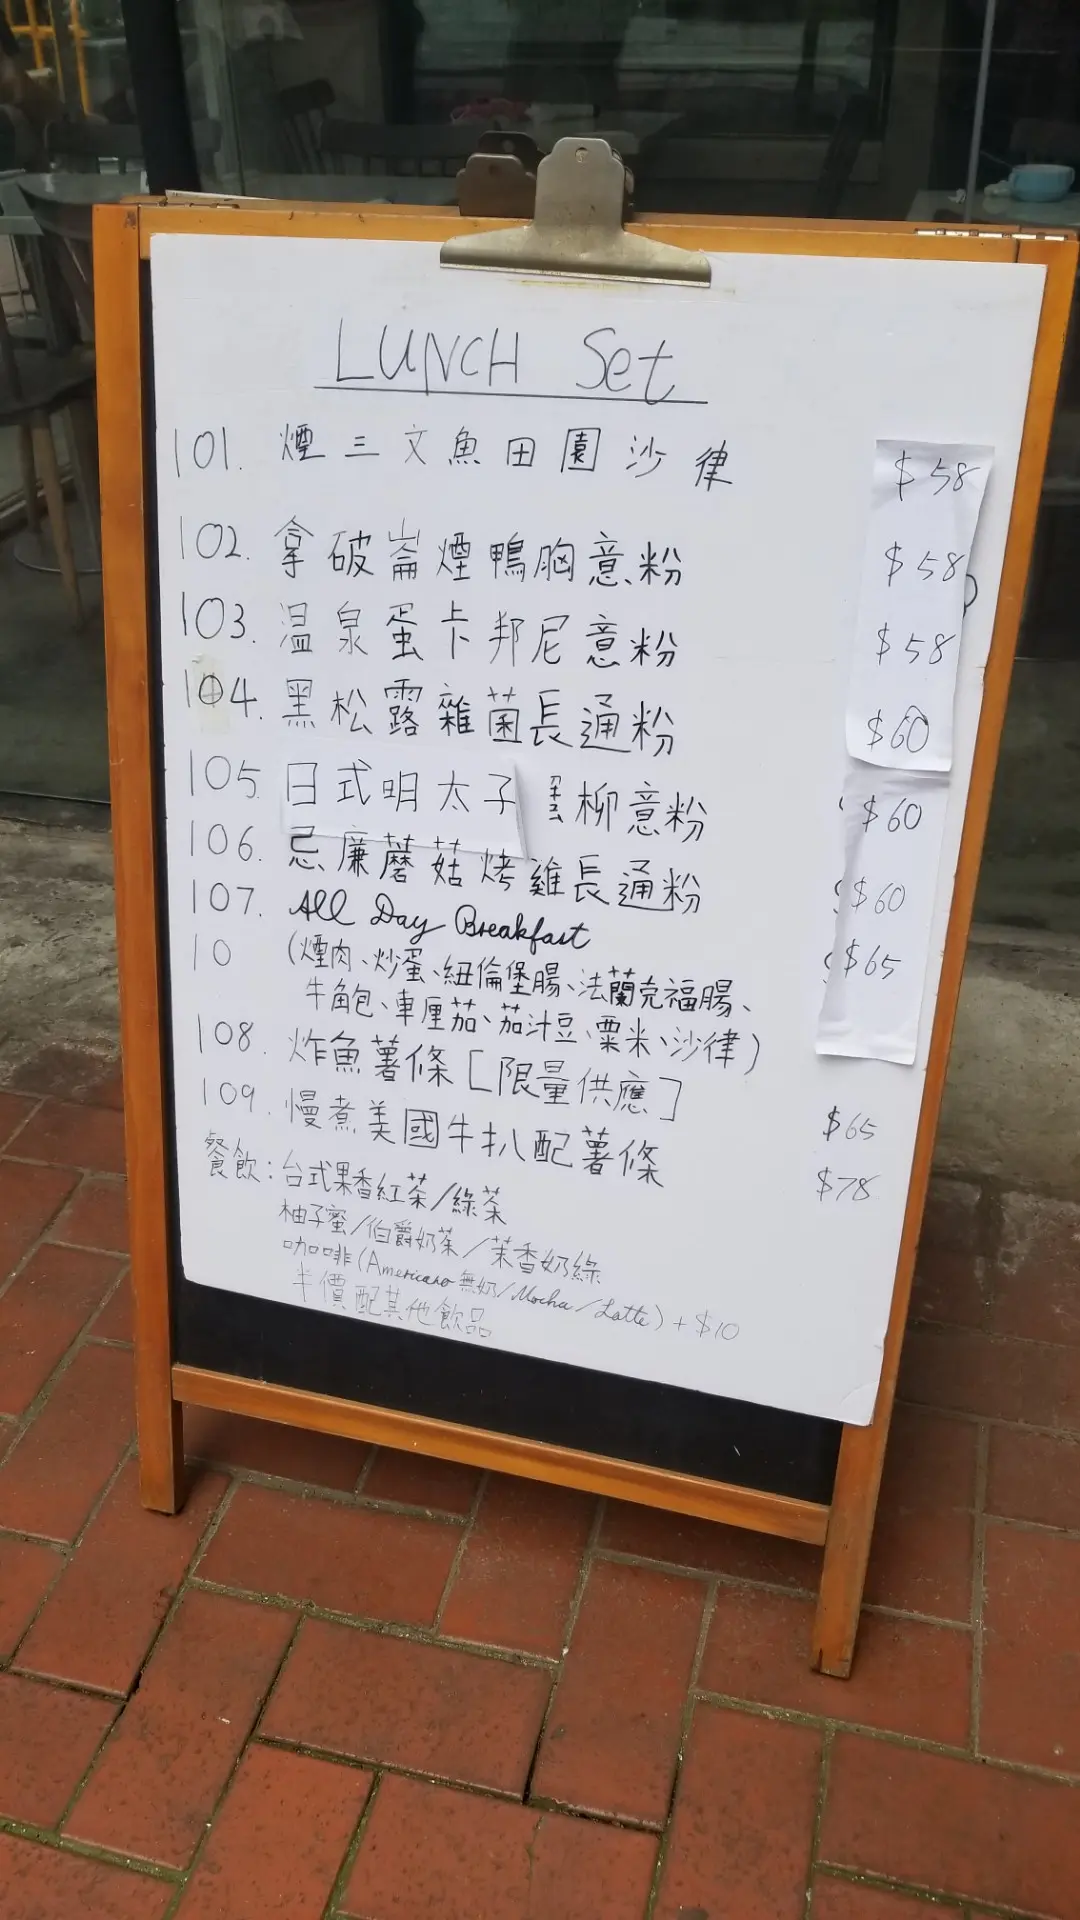 LUNCH Set
101. 煙三文魚田園沙律 $58
102. 拿破崙煙鴨胸意粉 $58
103. 温泉蛋卡邦尼意粉 $58
104. 黑松露雜菌長通粉 $60
105. 日式明太子 柳意粉 $60
106. 忌廉蘑菇烤雞長通粉 $60
107. All Day Breakfast $65
10 (煙肉、炒蛋、紐倫堡腸、法蘭克福腸、
牛角包、車厘茄、茄汁豆、粟米、沙律)
108. 炸魚薯條 [限量供應] $65
109. 慢煮美國牛扒配薯條 $78
餐飲：台式果香紅茶/綠茶
柚子蜜/伯爵奶茶/茉香奶綠
咖啡(Americano 無奶/Mocha/Latte) +$10
半價配其他飲品